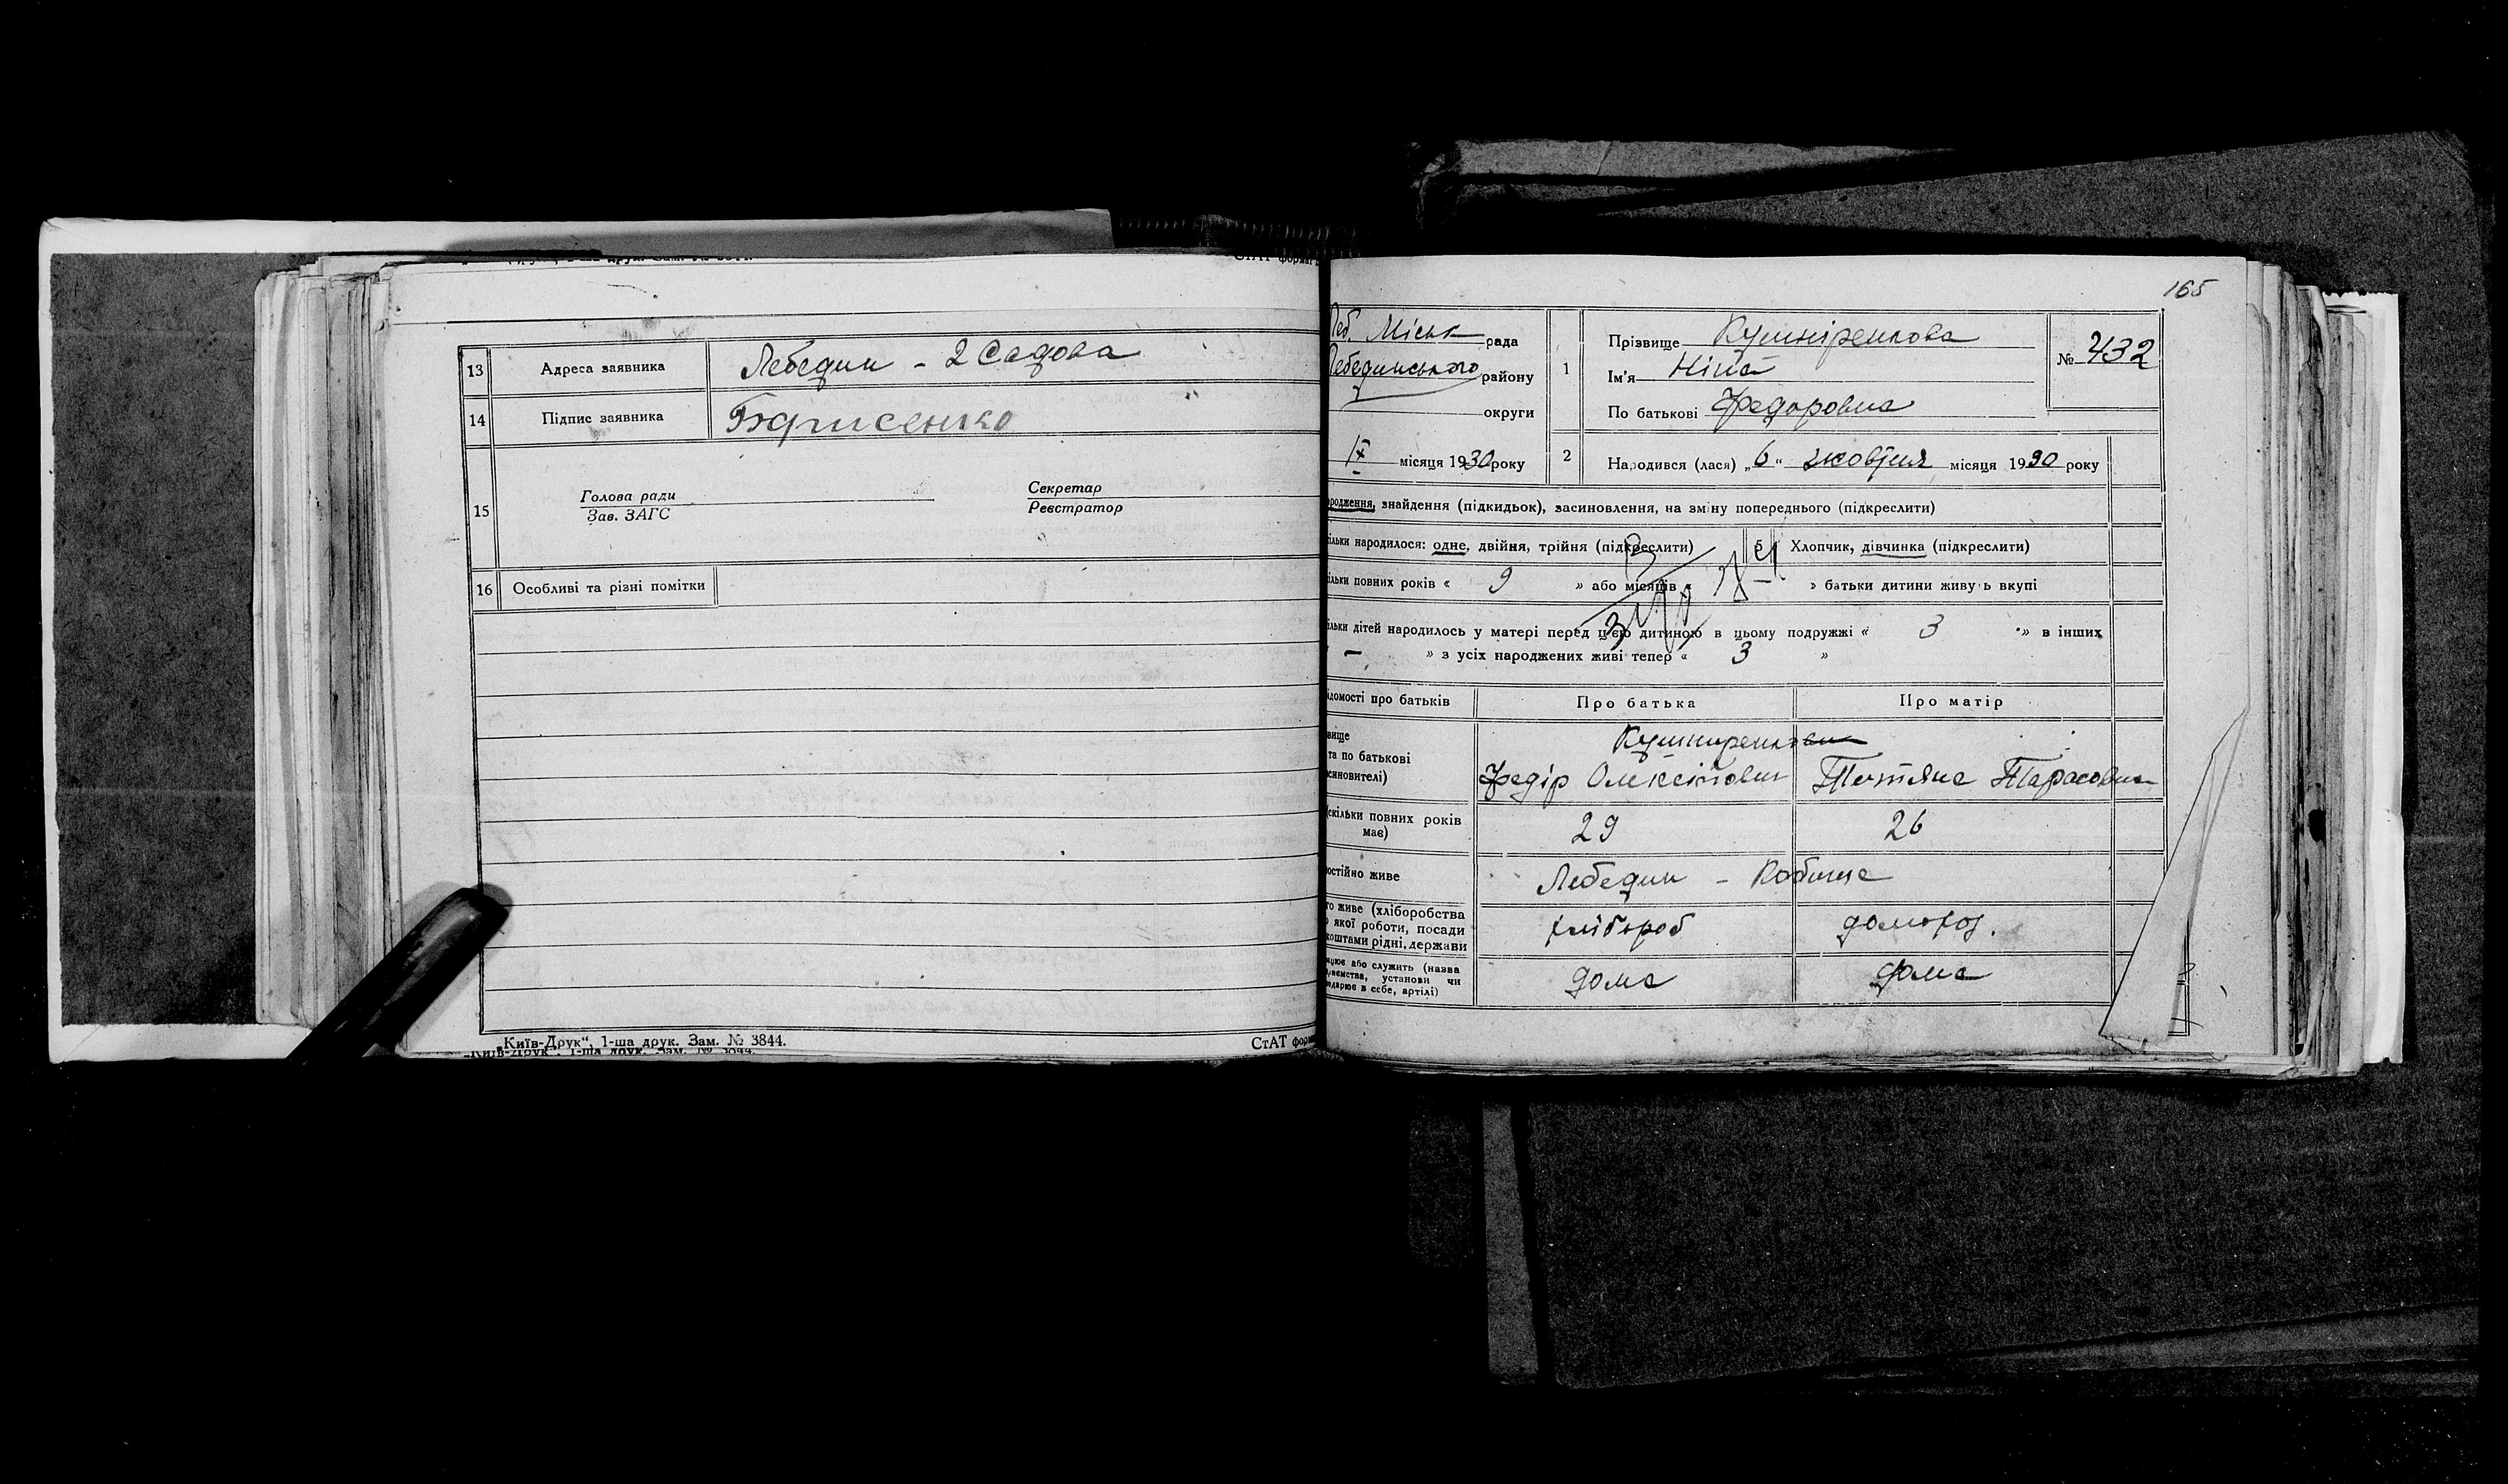 13 Адреса заявника Лебедин - 2 Садова
14 Підпис заявника Борисенко
15 Голова ради Секретар
Зав. ЗАГС Реєстратор
16 Особливі та різні помітки
„Київ-Друк“, 1-ша друк. Зам. № 3844.
СтАТ
165
Міськ рада
Лебединського району
округи
IX місяця 1930 року
1 Прізвище Кушніренкова
Ім'я Ніна
По батькові Федоровна
№ 432
2 Народився (лася) „6“ жовтня місяця 1930 року
знайдення (підкидьок), засиновлення, на зміну попереднього (підкреслити)
народилося: одне, двійня, трійня (підкреслити) 5 Хлопчик, дівчинка (підкреслити)
повних років « 9 » або місяців « » батьки дитини живуть вкупі
дітей народилось у матері перед цією дитиною в цьому подружжі « 3 » в інших
– » з усіх народжених живі тепер « 3 »
про батьків Про батька Про матір
Кушниренко
та по батькові
Федір Олексійович Тетяна Тарасовна
повних років
має) 29 26
живе Лебедин - Кобижа
живе (хліборобства
якої роботи, посади
рідні, держави хлібороб домогоз.
або служить (назва
установи чи
в себе, артілі) дома дома